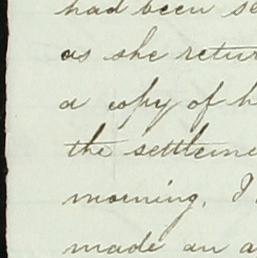 had been se
as she retur
a copy of h
the settleme
morning. I
made an a